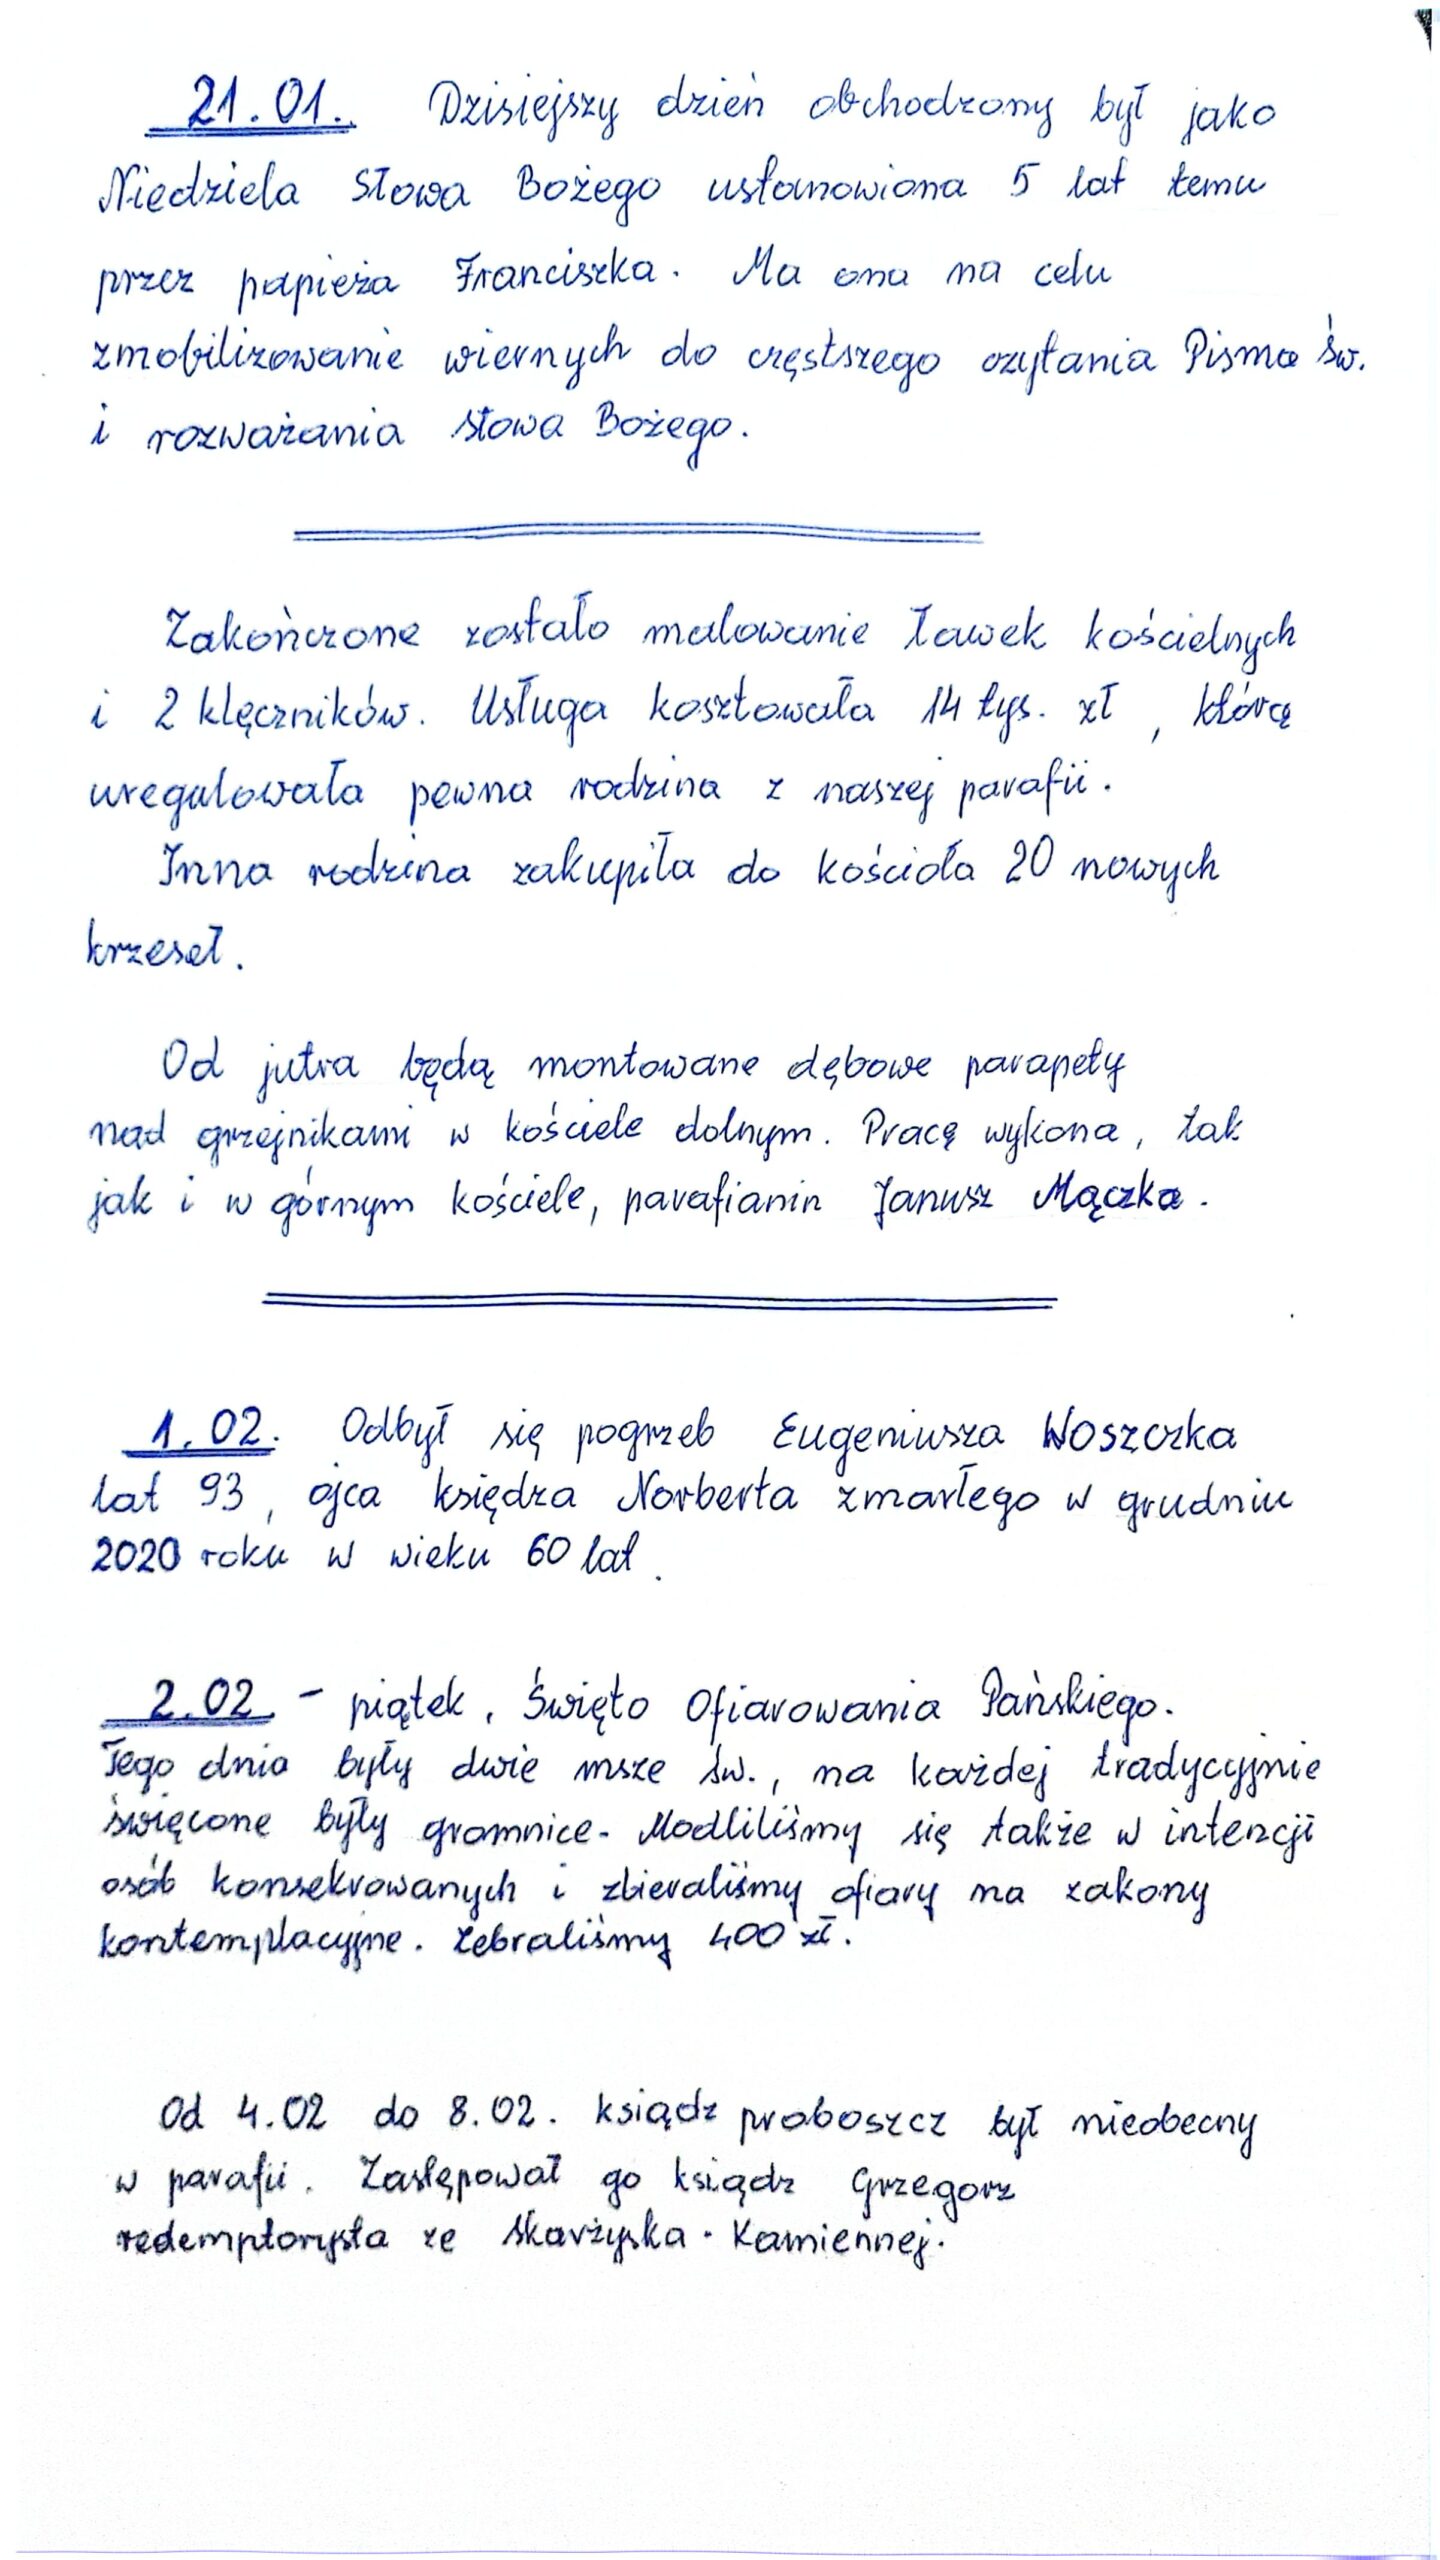 21.01. Dzisiejszy dzień obchodzony był jako
Niedziela Słowa Bożego ustanowiona 5 lat temu
przez papieża Franciszka. Ma ona na celu
zmobilizowanie wiernych do częstszego czytania Pisma Św.
i rozważania słowa Bożego.
Zakończone zostało malowanie ławek kościelnych
i 2 klęczników. Usługa kosztowała 14 tys. zł, którą
uregulowała pewna rodzina z naszej parafii.
Inna rodzina zakupiła do kościoła 20 nowych
krzeseł.
Od jutra będą montowane dębowe parapety
nad grzejnikami w kościele dolnym. Pracę wykona, tak
jak i w górnym kościele, parafianin Janusz Mączka.
1.02. Odbył się pogrzeb Eugeniusza Woszczka
lat 93, ojca księdza Norberta zmarłego w grudniu
2020 roku w wieku 60 lat.
2.02. - piątek, Święto Ofiarowania Pańskiego.
Tego dnia były dwie msze św., na każdej tradycyjnie
święcone były gromnice. Modliliśmy się także w intencji
osób konsekrowanych i zbieraliśmy ofiary na zakony
kontemplacyjne. Zebraliśmy 400 zł.
Od 4.02 do 8.02. ksiądz proboszcz był nieobecny
w parafii. Zastępował go ksiądz Grzegorz
redemptorysta ze Skarżyska-Kamiennej.